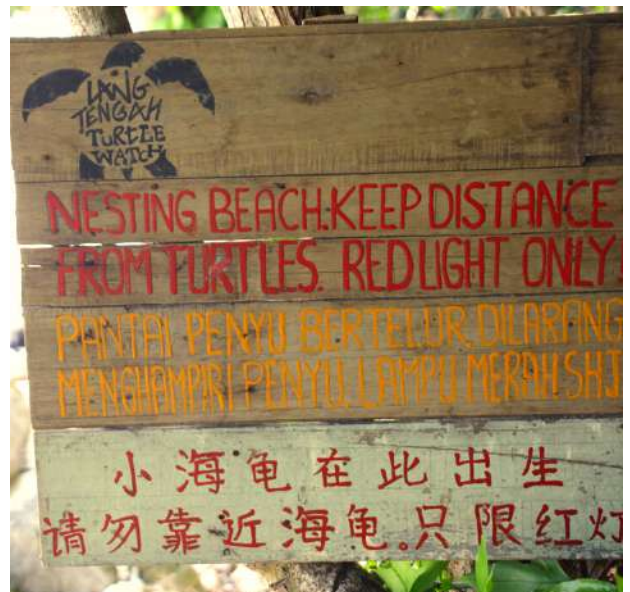 LANG
TENGAH
TURTLE
WATCH
NESTING BEACH. KEEP DISTANCE
FROM TURTLES. RED LIGHT ONLY!
PANTAI PENYU BERTELUR. DILARANG
MENGHAMPIRI PENYU. LAMPU MERAH SHJ
小海龟在此出生
请勿靠近海龟。只限红灯